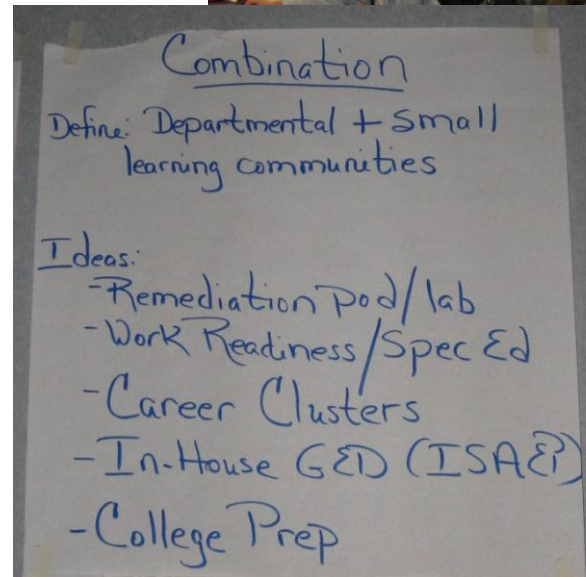 Combination
Define: Departmental + Small
learning communities
Ideas:
- Remediation Pod/lab
- Work Readiness/Spec Ed
- Career Clusters
- In-House GED (ISAEP)
- College Prep